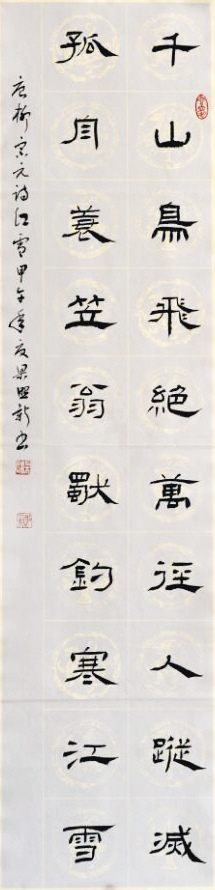 千山鳥飛絕萬徑人蹤滅
孤舟蓑笠翁獨釣寒江雪
唐柳宗元诗江雪甲午年夏梁照新书